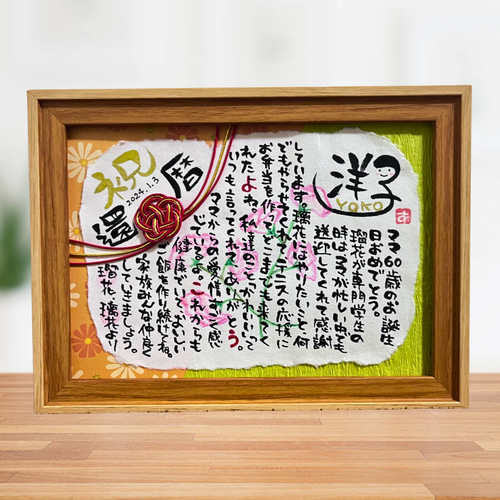 洋子
YOKO
ママ60歳のお誕生
日おめでとう。
瑠花が専門学生の
時はママが忙しい中でも
送迎してくれて感謝
しています。璃花にはやりたいこと何
でもやらせてくれて、テニスの応援に
お弁当を作ってどこまでも来てく
れたよね。私達のことかわいいって
いつも言ってくれてありがとう。
ママからの愛情すごく感
じているよ。これからも
健康でいて、おいしい
ご飯を作り続けてね。
家族みんな仲良く
していきましょう。
瑠花、璃花より
祝
還暦
2024.1.3